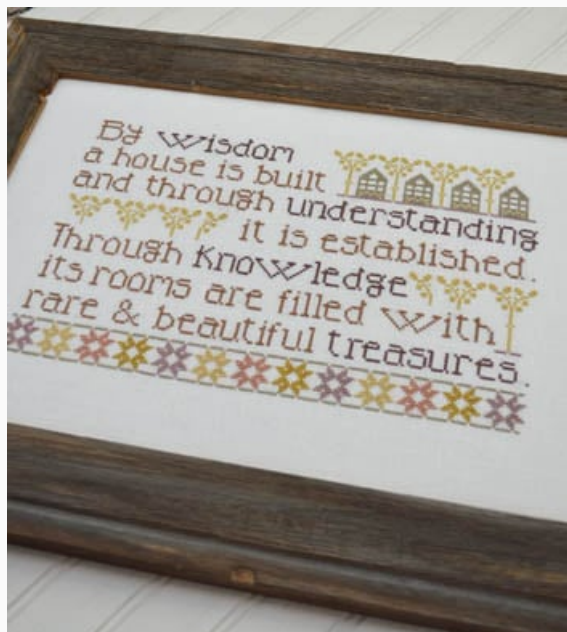 By Wisdom
a house is built
and through understanding
it is established.
Through Knowledge
its rooms are filled With
rare & beautiful treasures.